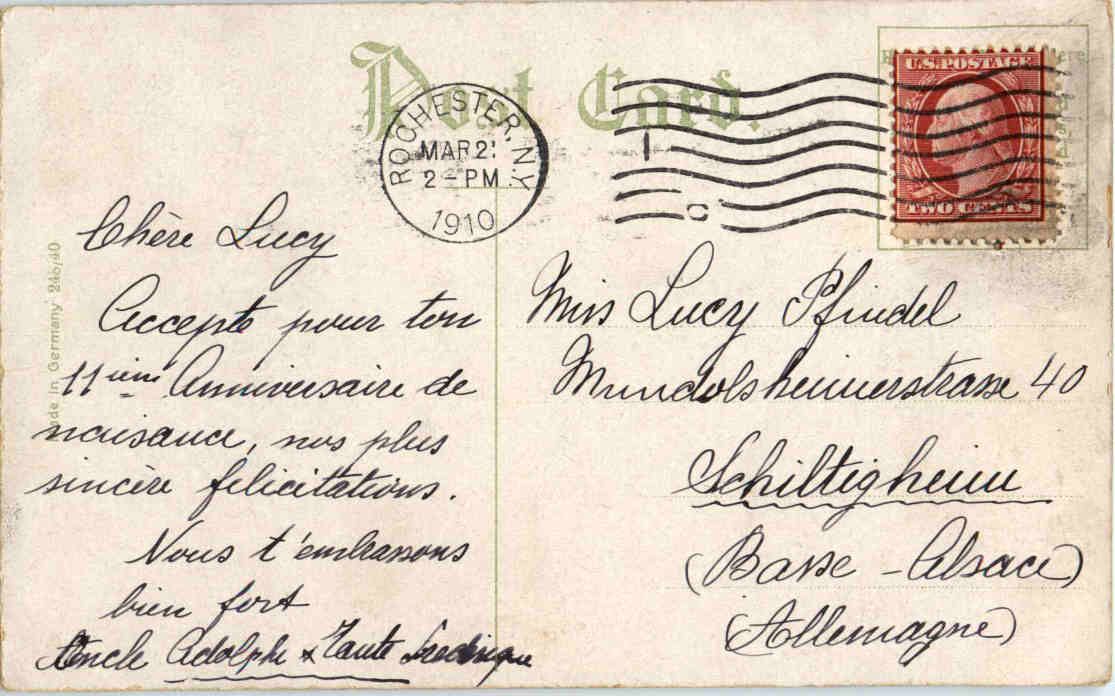 Post Card.
U.S. POSTAGE
TWO CENTS
ROCHESTER, N.Y.
MAR 2
2 - PM
1910
Made in Germany 246/40
Chère Lucy
Accepte pour ton
11ième Anniversaire de
naisance, nos plus
sincère félicitations.
Nous t'embrassons
bien fort
Oncle Adolphe & Tante
Miss Lucy Pfindel
Mundolsheimerstrasse 40
Schiltigheim
(Basse - Alsace)
(Allemagne)